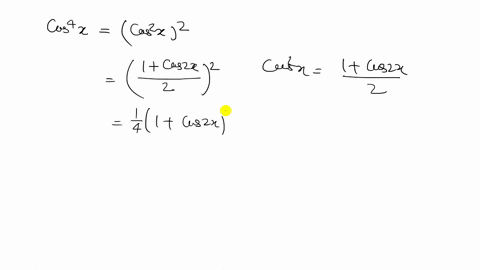 Cos⁴x = (Cos²x)²
= ((1 + Cos2x)/2)²
Cos²x = (1 + Cos2x)/2
= 1/4 (1 + Cos2x)